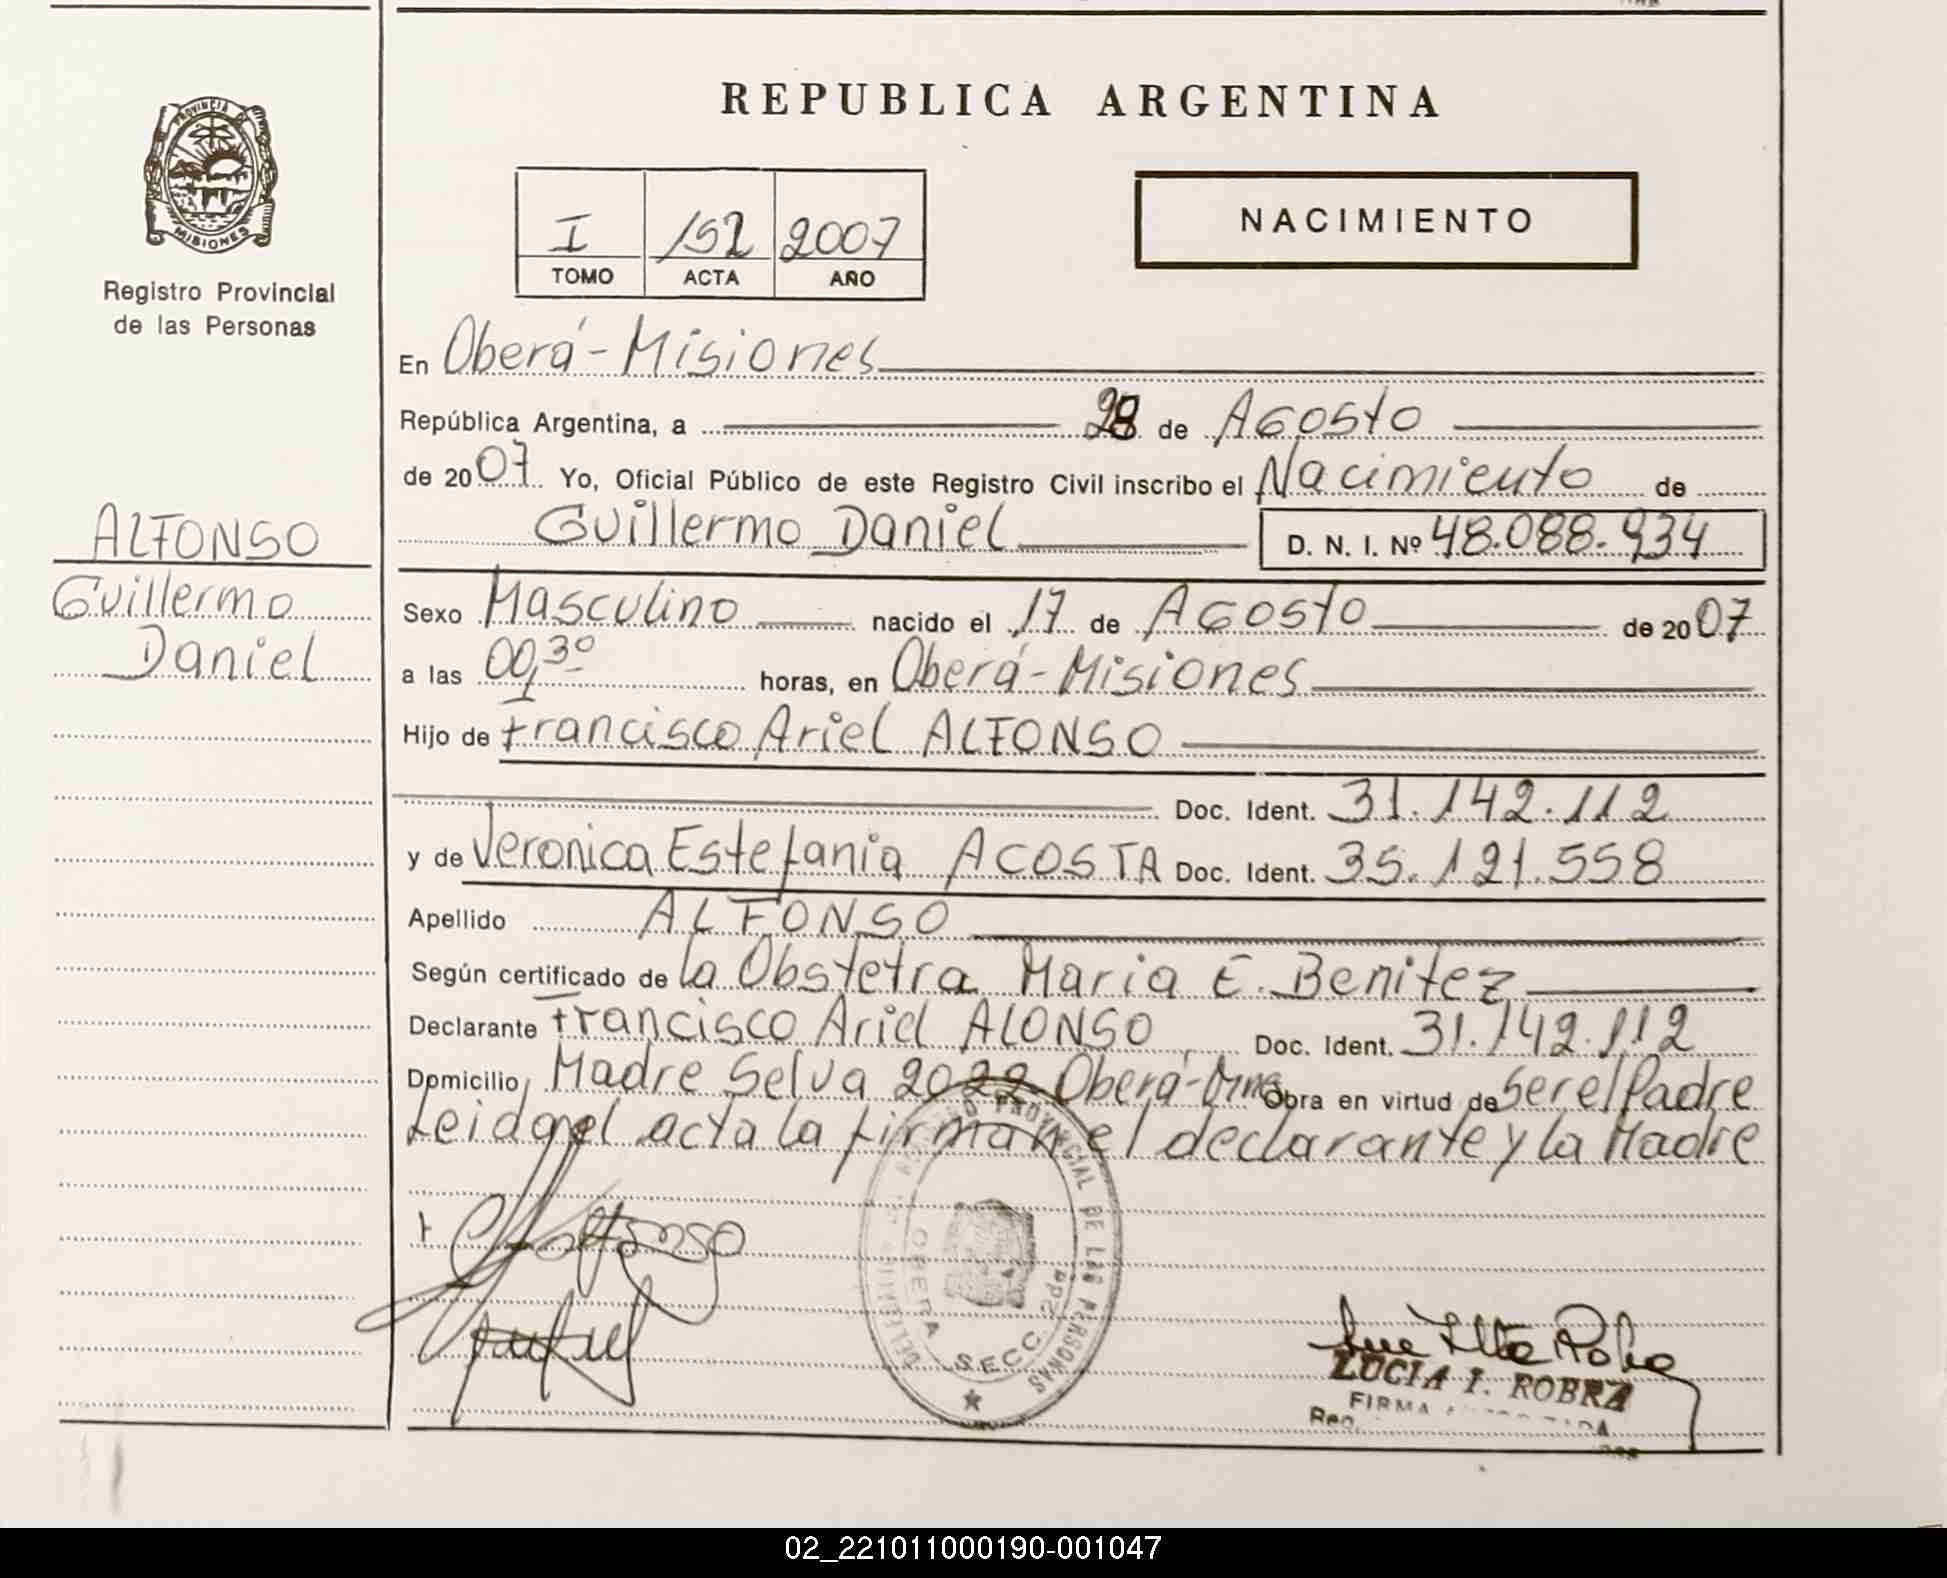 REPUBLICA ARGENTINA
PROVINCIA DE
MISIONES
Registro Provincial
de las Personas
I 152 2007
TOMO ACTA AÑO
NACIMIENTO
En Oberá-Misiones
República Argentina, a 28 de Agosto
de 2007 Yo, Oficial Público de este Registro Civil inscribo el Nacimiento de
Guillermo Daniel D. N. I. Nº 48.088.934
ALFONSO
Guillermo
Daniel
Sexo Masculino nacido el 17 de Agosto de 2007
a las 00,30 horas, en Oberá-Misiones
Hijo de Francisco Ariel ALFONSO
Doc. Ident. 31.142.112
y de Veronica Estefania ACOSTA Doc. Ident. 35.121.558
Apellido ALFONSO
Según certificado de la Obstetra Maria E. Benitez
Declarante Francisco Ariel ALONSO Doc. Ident. 31.142.112
Domicilio Madre Selva 2022 Oberá-Mnes Obra en virtud de Ser el Padre
Leida el acta la firman el declarante y la Madre
Alfonso
REGISTRO PROVINCIAL DE LAS PERSONAS
OBERA SECC. 2da
LUCIA I. ROBRA
FIRMA
Reg.
02_221011000190-001047